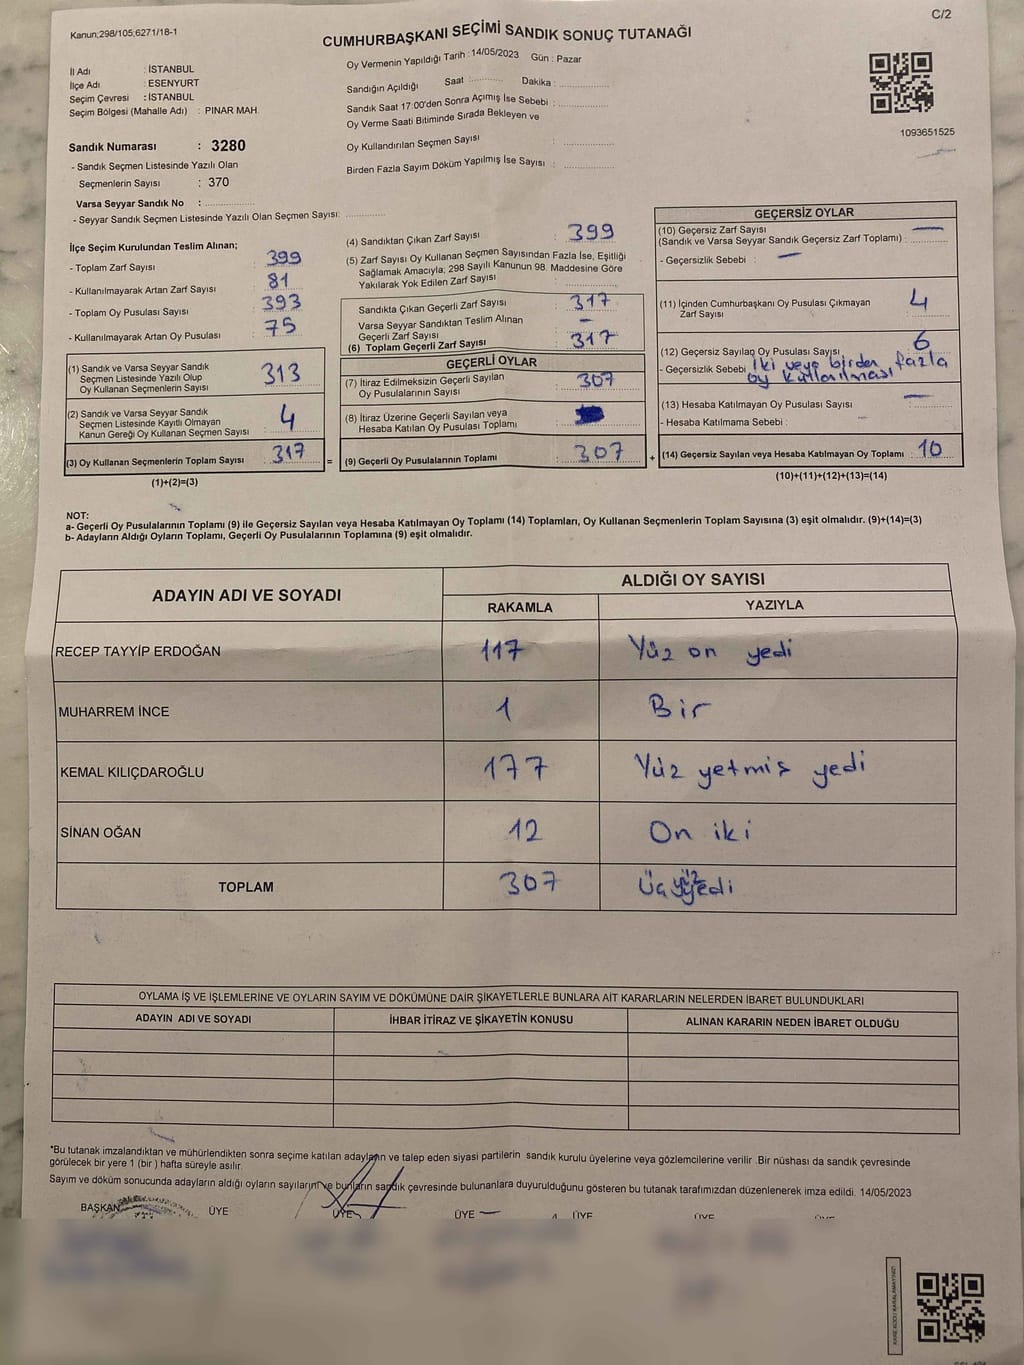 C/2
Kanun;298/105;6271/18-1
CUMHURBAŞKANI SEÇİMİ SANDIK SONUÇ TUTANAĞI
Oy Vermenin Yapıldığı Tarih : 14/05/2023 Gün : Pazar
İl Adı : İSTANBUL
İlçe Adı : ESENYURT
Seçim Çevresi : İSTANBUL
Seçim Bölgesi (Mahalle Adı) : PINAR MAH.
Sandığın Açıldığı Saat : Dakika :
Sandık Saat 17:00'den Sonra Açımış İse Sebebi :
Oy Verme Saati Bitiminde Sırada Bekleyen ve
Oy Kullandırılan Seçmen Sayısı :
Birden Fazla Sayım Döküm Yapılmış İse Sayısı :
1093651525
Sandık Numarası : 3280
- Sandık Seçmen Listesinde Yazılı Olan
Seçmenlerin Sayısı : 370
Varsa Seyyar Sandık No :
- Seyyar Sandık Seçmen Listesinde Yazılı Olan Seçmen Sayısı:
İlçe Seçim Kurulundan Teslim Alınan;
- Toplam Zarf Sayısı : 399
- Kullanılmayarak Artan Zarf Sayısı : 81
- Toplam Oy Pusulası Sayısı : 393
- Kullanılmayarak Artan Oy Pusulası : 75
(1) Sandık ve Varsa Seyyar Sandık
Seçmen Listesinde Yazılı Olup
Oy Kullanan Seçmenlerin Sayısı : 313
(2) Sandık ve Varsa Seyyar Sandık
Seçmen Listesinde Kayıtlı Olmayan
Kanun Gereği Oy Kullanan Seçmen Sayısı : 4
(3) Oy Kullanan Seçmenlerin Toplam Sayısı : 317 =
(1)+(2)=(3)
(4) Sandıktan Çıkan Zarf Sayısı : 399
(5) Zarf Sayısı Oy Kullanan Seçmen Sayısından Fazla İse, Eşitliği
Sağlamak Amacıyla; 298 Sayılı Kanunun 98. Maddesine Göre
Yakılarak Yok Edilen Zarf Sayısı :
Sandıkta Çıkan Geçerli Zarf Sayısı : 317
Varsa Seyyar Sandıktan Teslim Alınan
Geçerli Zarf Sayısı : -
(6) Toplam Geçerli Zarf Sayısı : 317
GEÇERLİ OYLAR
(7) İtiraz Edilmeksizin Geçerli Sayılan
Oy Pusulalarının Sayısı : 307
(8) İtiraz Üzerine Geçerli Sayılan veya
Hesaba Katılan Oy Pusulası Toplamı :
(9) Geçerli Oy Pusulalarının Toplamı : 307 +
GEÇERSİZ OYLAR
(10) Geçersiz Zarf Sayısı
(Sandık ve Varsa Seyyar Sandık Geçersiz Zarf Toplamı) : —
- Geçersizlik Sebebi : —
(11) İçinden Cumhurbaşkanı Oy Pusulası Çıkmayan
Zarf Sayısı : 4
(12) Geçersiz Sayılan Oy Pusulası Sayısı : 6
- Geçersizlik Sebebi : iki veya birden fazla
oy kullanılması
(13) Hesaba Katılmayan Oy Pusulası Sayısı : —
- Hesaba Katılmama Sebebi :
(14) Geçersiz Sayılan veya Hesaba Katılmayan Oy Toplamı : 10
(10)+(11)+(12)+(13)=(14)
NOT:
a- Geçerli Oy Pusulalarının Toplamı (9) ile Geçersiz Sayılan veya Hesaba Katılmayan Oy Toplamı (14) Toplamları, Oy Kullanan Seçmenlerin Toplam Sayısına (3) eşit olmalıdır. (9)+(14)=(3)
b- Adayların Aldığı Oyların Toplamı, Geçerli Oy Pusulalarının Toplamına (9) eşit olmalıdır.
ADAYIN ADI VE SOYADI
ALDIĞI OY SAYISI
RAKAMLA YAZIYLA
RECEP TAYYİP ERDOĞAN 117 Yüz on yedi
MUHARREM İNCE 1 Bir
KEMAL KILIÇDAROĞLU 177 Yüz yetmiş yedi
SİNAN OĞAN 12 On iki
TOPLAM 307 Üç yüz yedi
OYLAMA İŞ VE İŞLEMLERİNE VE OYLARIN SAYIM VE DÖKÜMÜNE DAİR ŞİKAYETLERLE BUNLARA AİT KARARLARIN NELERDEN İBARET BULUNDUKLARI
ADAYIN ADI VE SOYADI İHBAR İTİRAZ VE ŞİKAYETİN KONUSU ALINAN KARARIN NEDEN İBARET OLDUĞU
*Bu tutanak imzalandıktan ve mühürlendikten sonra seçime katılan adayların ve talep eden siyasi partilerin sandık kurulu üyelerine veya gözlemcilerine verilir .Bir nüshası da sandık çevresinde
görülecek bir yere 1 (bir ) hafta süreyle asılır.
Sayım ve döküm sonucunda adayların aldığı oyların sayılarını ve bunların sandık çevresinde bulunanlara duyurulduğunu gösteren bu tutanak tarafımızdan düzenlenerek imza edildi. 14/05/2023
BAŞKAN ÜYE ÜYE ÜYE ÜYE ÜYE ÜYE